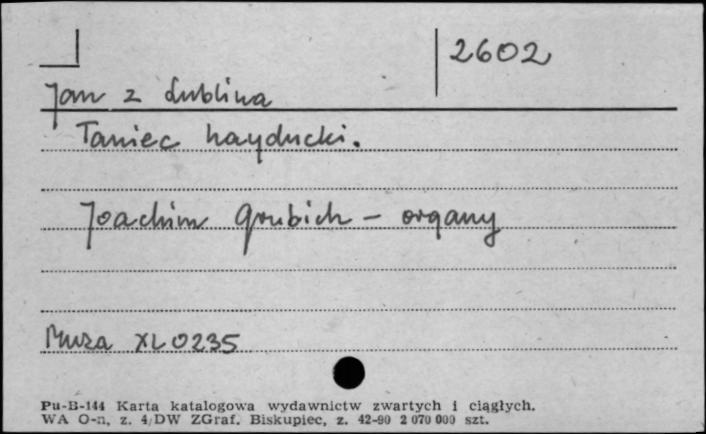 2602
Jan z Lublina
Taniec hayducki.
Joachim Grubich - organy
Muza XL0235
Pu-B-144 Karta katalogowa wydawnictw zwartych i ciągłych.
WA O-n, z. 4/DW ZGraf. Biskupiec, z. 42-90 2 070 000 szt.